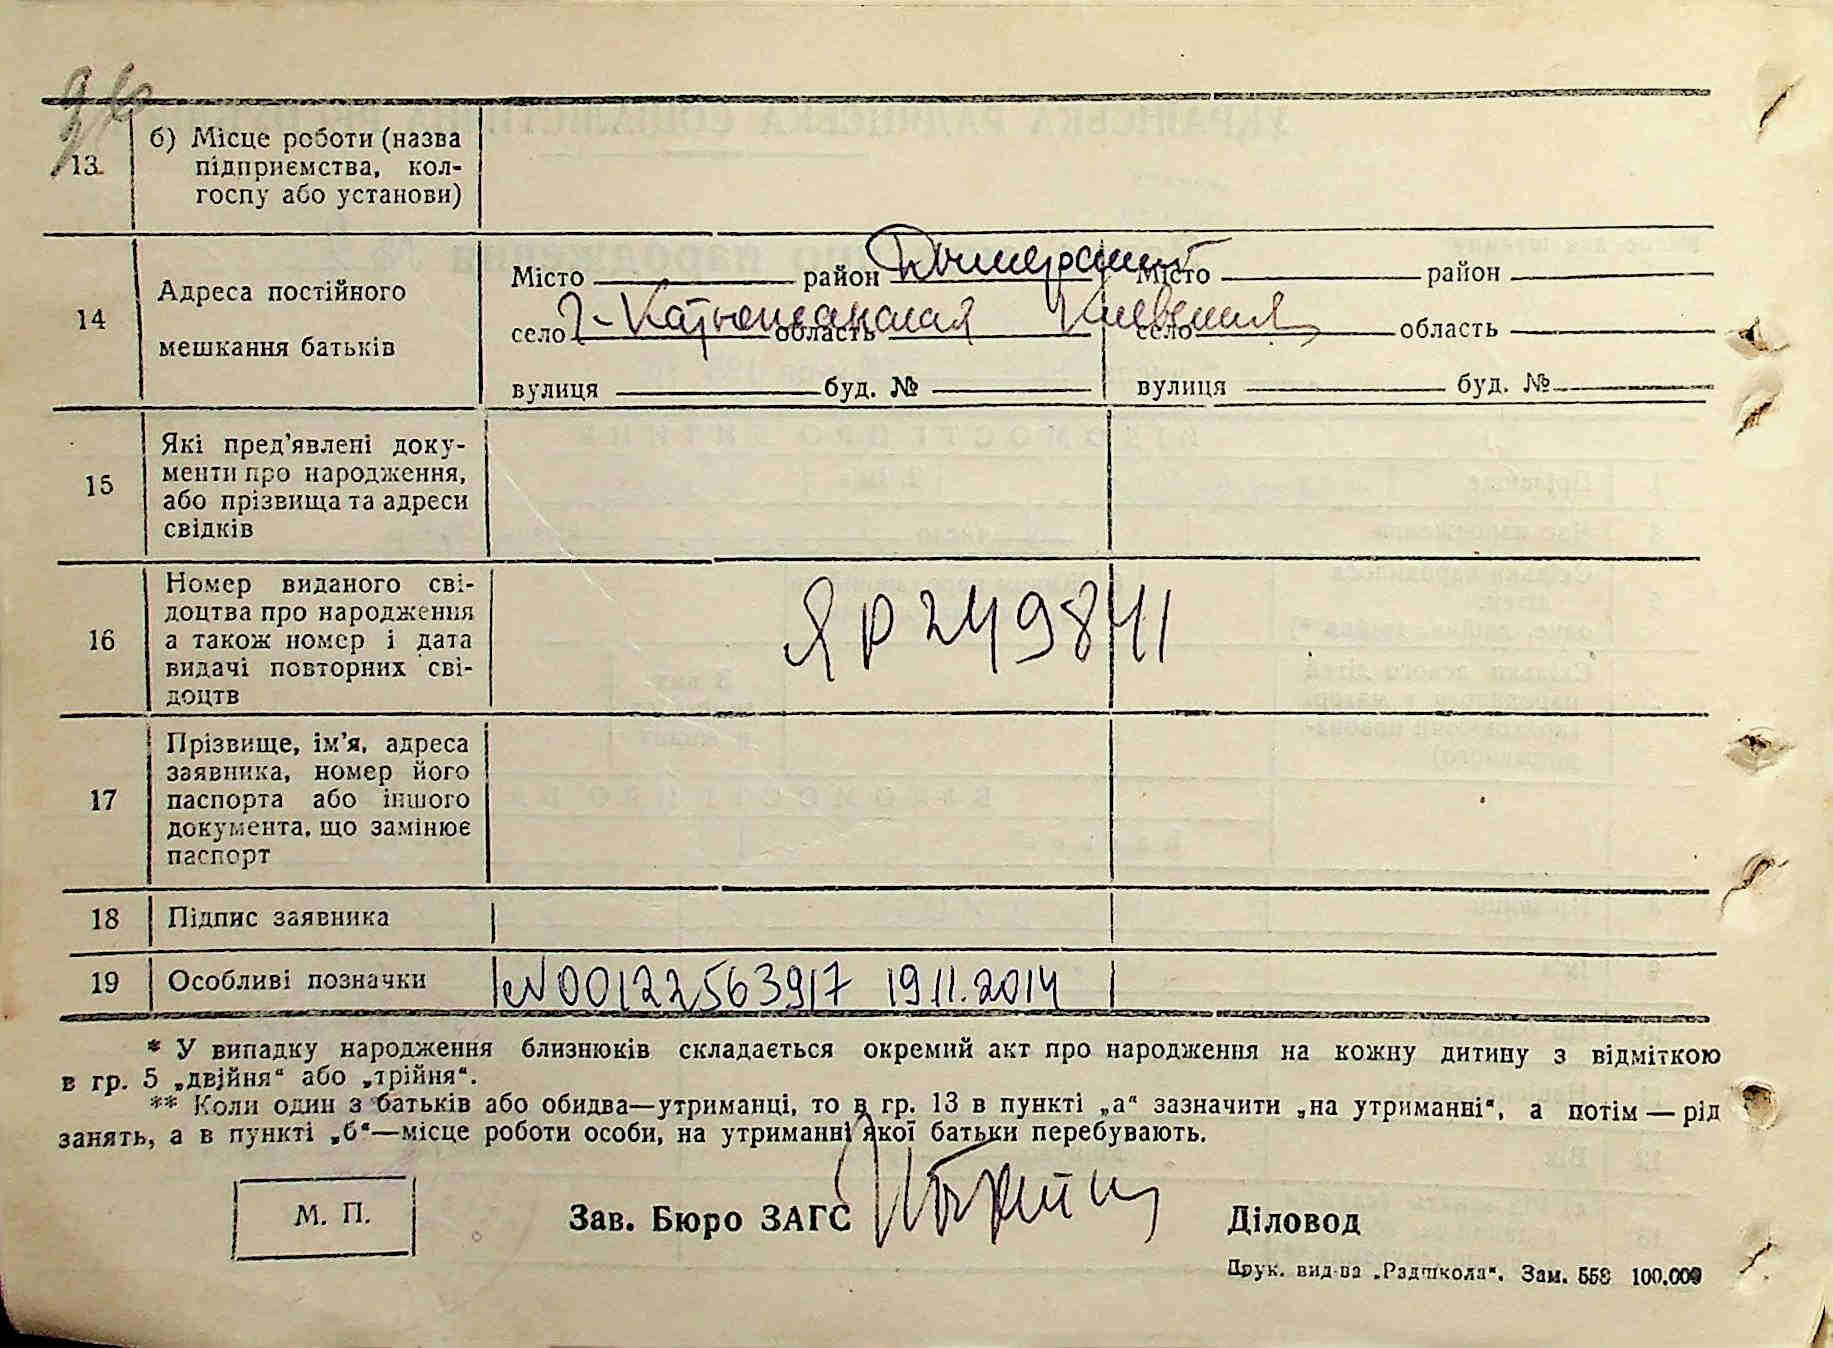 13.
б) Місце роботи (назва
підприємства, кол-
госпу або установи)
14
Адреса постійного
мешкання батьків
Місто район Дымерский Місто район
село область Киевская село область
вулиця буд. № вулиця буд. №
15
Які пред'явлені доку-
менти про народження,
або прізвища та адреси
свідків
16
Номер виданого сві-
доцтва про народження
а також номер і дата
видачі повторних сві-
доцтв
ЯР 249841
17
Прізвище, ім'я, адреса
заявника, номер його
паспорта або іншого
документа, що замінює
паспорт
18 Підпис заявника
19 Особливі позначки №00122563917 19.11.2014
* У випадку народження близнюків складається окремий акт про народження на кожну дитину з відміткою
в гр. 5 „двійня“ або „трійня“.
** Коли один з батьків або обидва—утриманці, то в гр. 13 в пункті „а“ зазначити „на утриманні“, а потім — рід
занять, а в пункті „б“—місце роботи особи, на утриманні якої батьки перебувають.
М. П.
Зав. Бюро ЗАГС
Діловод
Друк. вид-ва „Радшкола“. Зам. 558 100.000